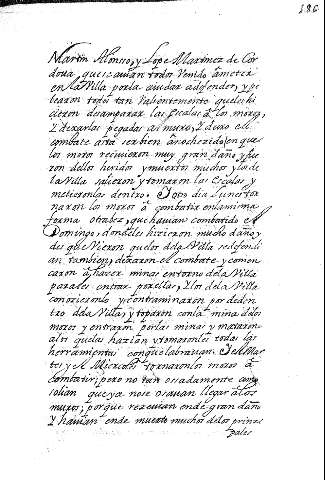 186
Martin Alonso, y Lope Martinez de Cor
doua, que se auian todos venido a meter
en la Villa por la aiudar a defender, y pe
learon todos tan valientemente que les hi
cieron desamparar las escalas a los moros,
y dexarlas pegadas al muro, y duro el
combate asta ser bien anochezido, en que
los moros reciuieron muy gran daño, y fue
ron dellos heridos y muertos muchos y los de
la Villa salieron y tomaron las escalas, y
metieronlas dentro. Y otro dia Lunes tor
naron los moros a combatir en la misma
forma otra vez, que hauian combatido el
Domingo, donde les hicieron mucho daño, y
des que vieron que los de la Villa se defendi
an tambien, dexaron el combate, y comen
zaron a hacer minas entorno de la Villa
para les entrar por ellas, y los de la Villa
conocieronlo y contraminaron por de den
tro de la Villa, y toparon con la mina de los
moros y entraron por las minas y mataron
a los que las hazian y tomaronles todas las
herramientas con que labrauan. Y el Mar
tes y el Miercoles tornaron los moros a
combatir; pero no tan osadamente como
solian que ya no se osauan llegar a los
muros; porque rezeuian ende gran daño
y hauian ende muerto muchos de los prinzi
pales